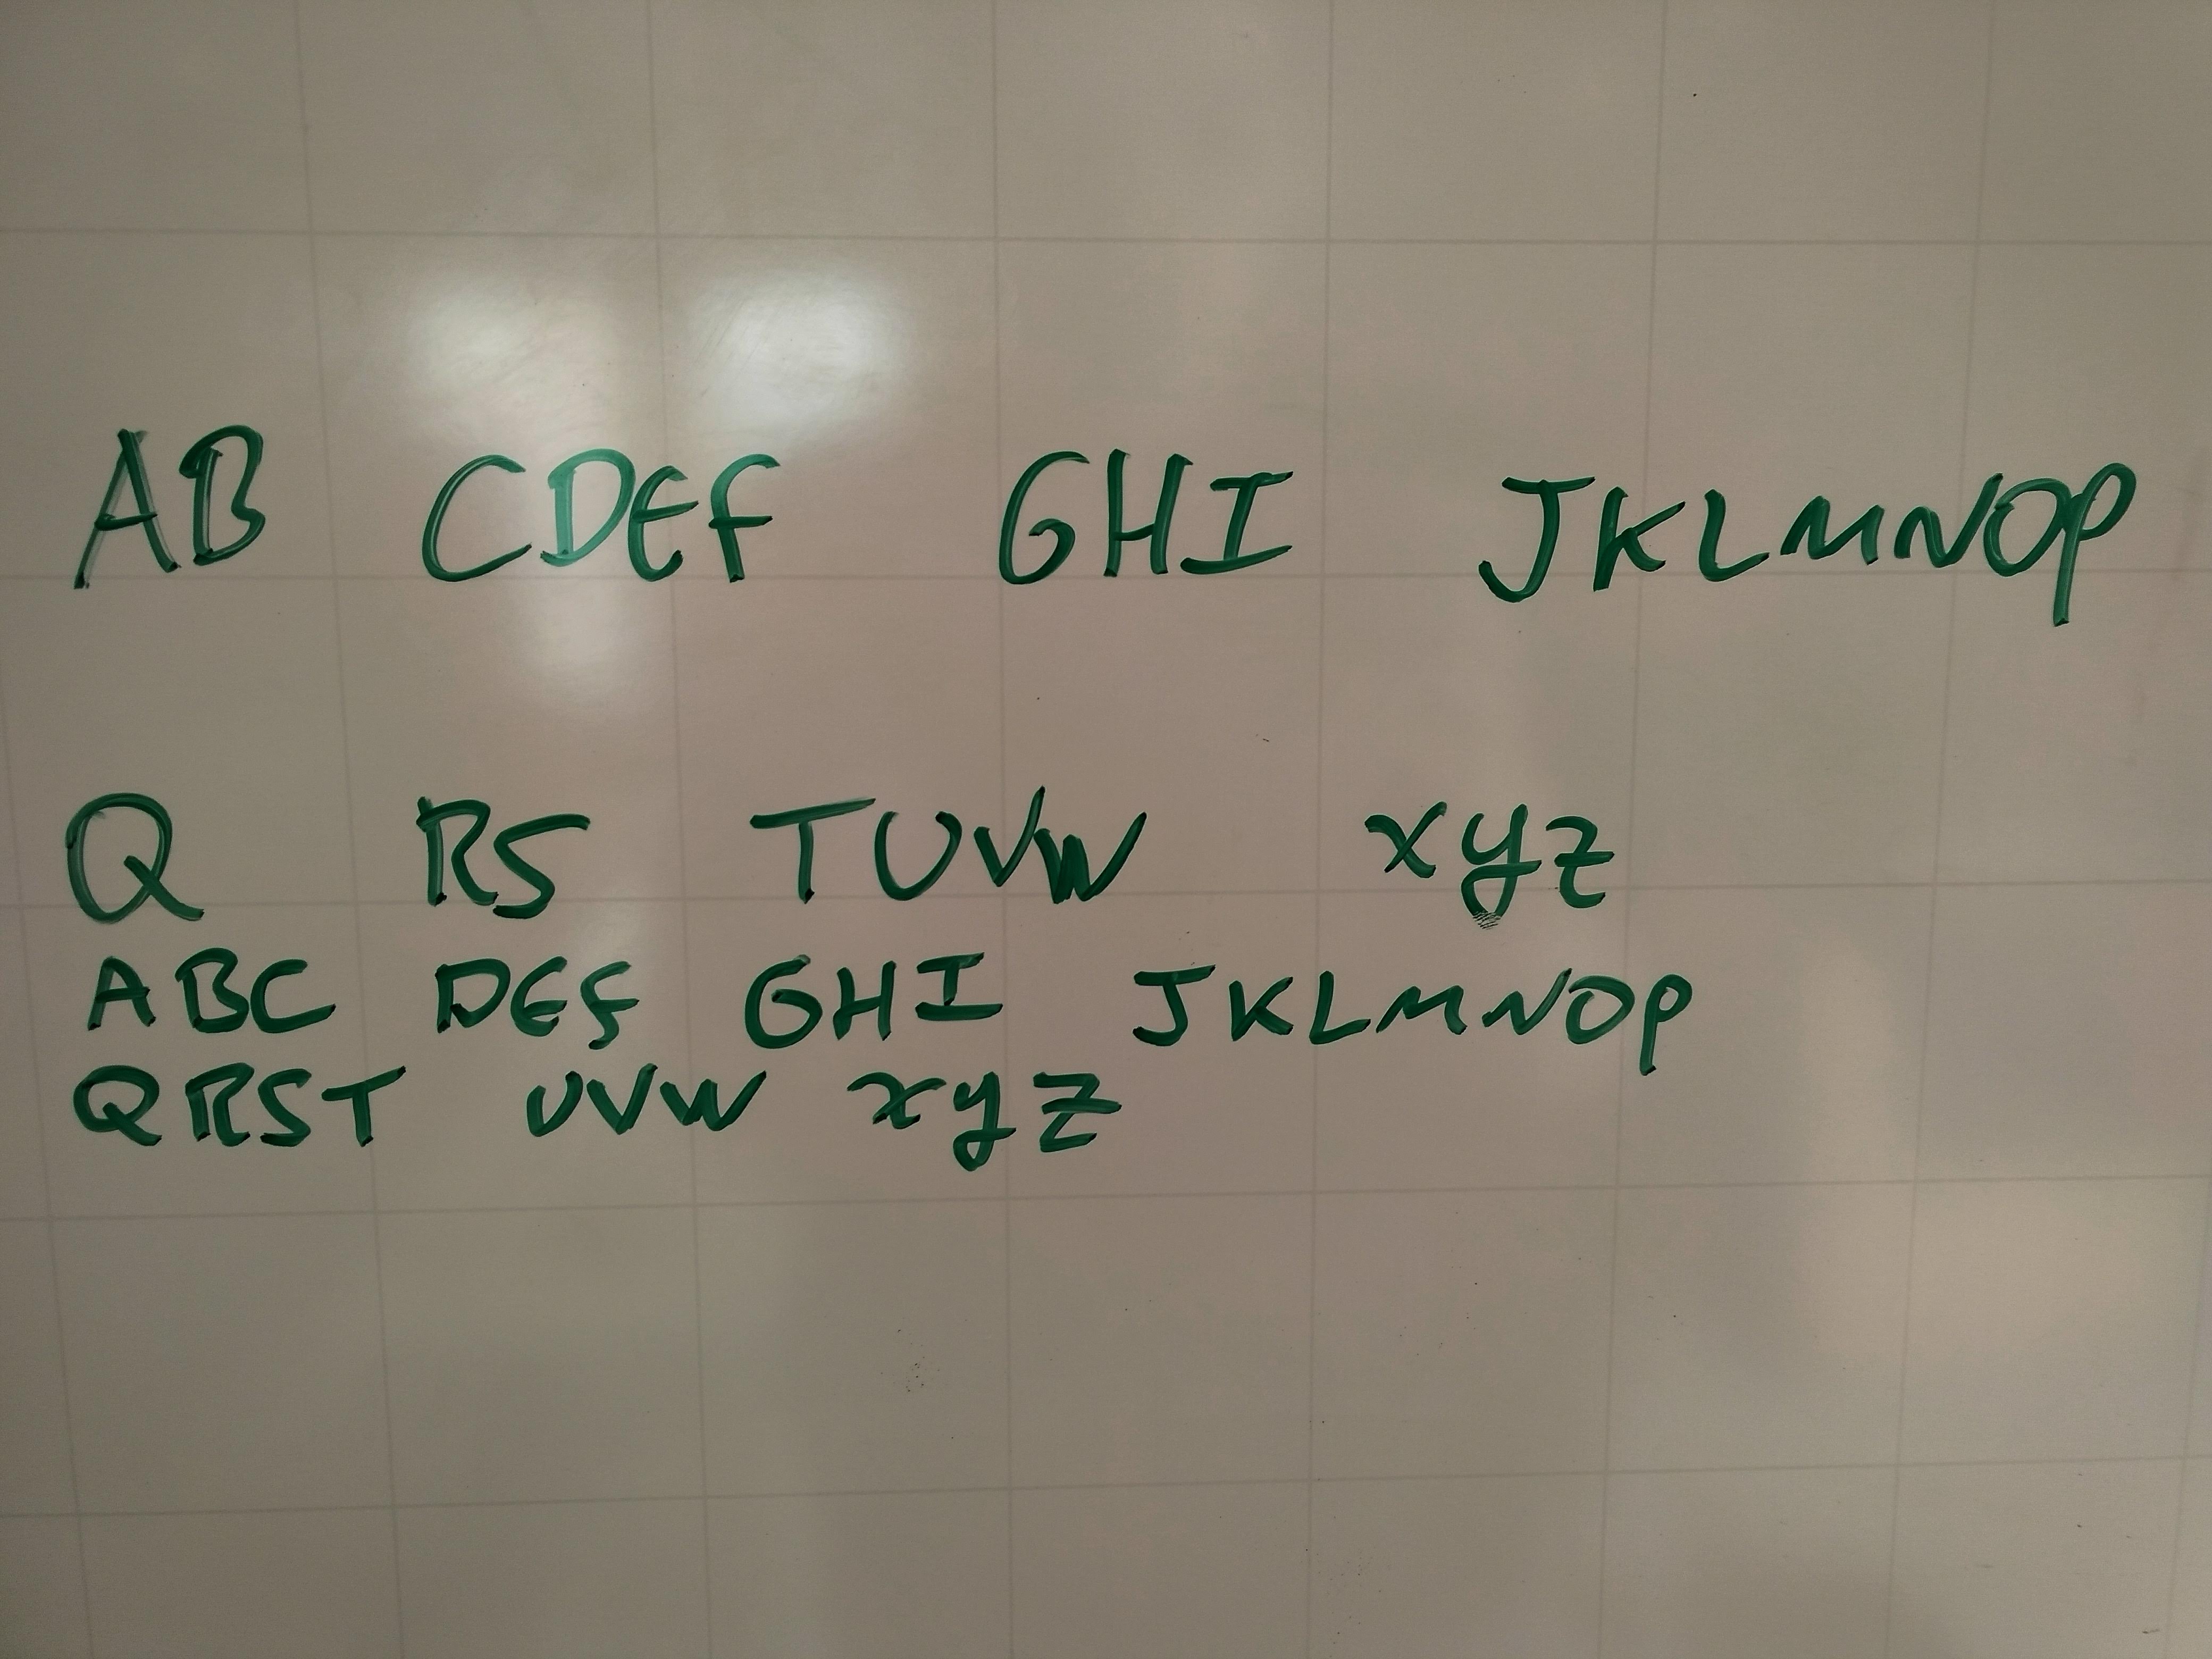 AB CDEF GHI JKLMNOP
Q RS TUVW xyz
ABC DEF GHI JKLMNOP
QRST UVW xyz